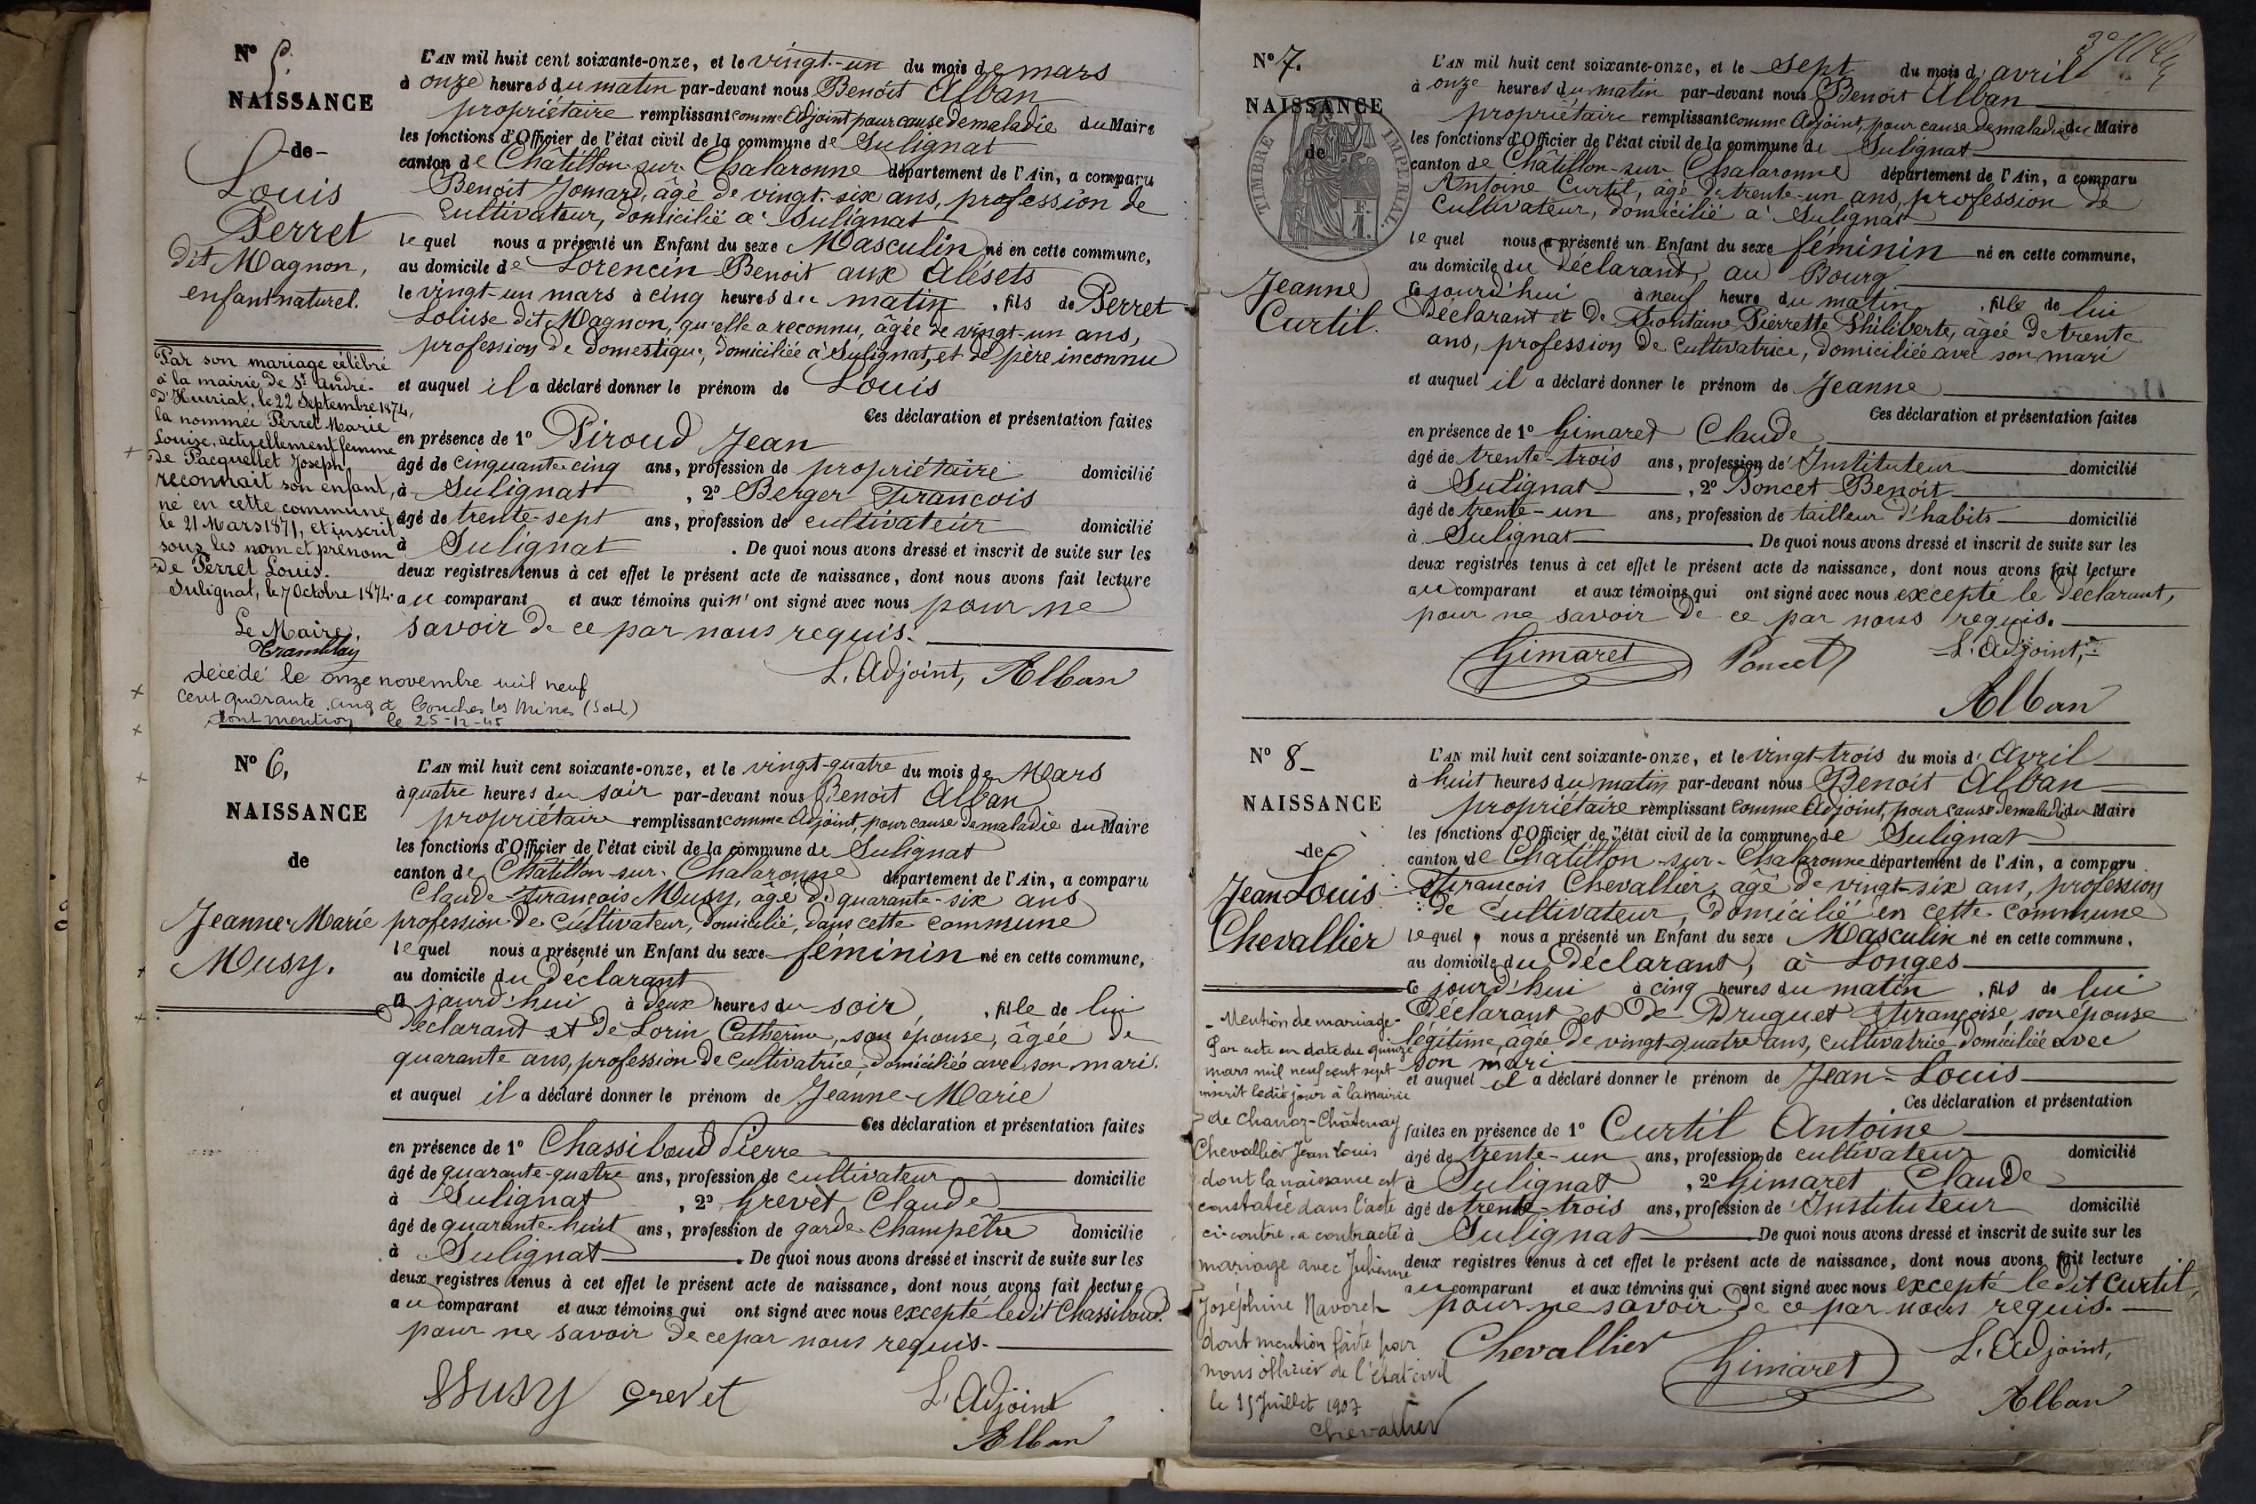 N° 5.
NAISSANCE
-de-
Louis
Perret
dit Magnon,
enfant naturel.
Par son mariage célébré
à la mairie de St André-
D'Huiriat, le 22 Septembre 1874,
la nommée Perret Marie
Louise, actuellement femme
de Pacquellet Joseph,
reconnait son enfant,
né en cette commune
le 21 Mars 1871, et inscrit
sous les nom et prénom
de Perret Louis.
Sulignat, le 7 Octobre 1874.
Le Maire,
Tramblay
décédé le onze novembre mil neuf
cent quarante cinq à Couches les Mines (S&L)
dont mention le 25-12-45
L'AN mil huit cent soixante-onze, et le vingt-un du mois de mars
à onze heures du matin par-devant nous Benoit Alban
propriétaire remplissant comme Adjoint pour cause de maladie du Maire
les fonctions d'Officier de l'état civil de la commune de Sulignat
canton de Châtillon-sur-Chalaronne département de l'Ain, a comparu
Benoit Jomard, âgé de vingt-six ans, profession de
Cultivateur, domicilié à Sulignat
lequel nous a présenté un Enfant du sexe Masculin né en cette commune,
au domicile de Lorencin Benoit aux Alésets
le vingt-un mars à cinq heures du matin, fils de Perret
Louise dit Magnon, qu'elle a reconnu, âgée de vingt-un ans,
profession de domestique, domiciliée à Sulignat, et de père inconnu
et auquel il a déclaré donner le prénom de Louis
Ces déclaration et présentation faites
en présence de 1° Piroud Jean
âgé de cinquante-cinq ans, profession de propriétaire domicilié
à Sulignat, 2° Berger François
âgé de trente-sept ans, profession de cultivateur domicilié
à Sulignat. De quoi nous avons dressé et inscrit de suite sur les
deux registres tenus à cet effet le présent acte de naissance, dont nous avons fait lecture
au comparant et aux témoins qui n'ont signé avec nous pour ne
savoir de ce par nous requis.
L'Adjoint, Alban
N° 6.
NAISSANCE
de
Jeanne-Marie
Musy.
L'AN mil huit cent soixante-onze, et le vingt-quatre du mois de Mars
à quatre heures du soir par-devant nous Benoit Alban
propriétaire remplissant comme Adjoint, pour cause de maladie du Maire
les fonctions d'Officier de l'état civil de la commune de Sulignat
canton de Châtillon-sur-Chalaronne département de l'Ain, a comparu
Claude-François Musy, âgé de quarante-six ans
profession de cultivateur, domicilié, dans cette commune
lequel nous a présenté un Enfant du sexe féminin né en cette commune,
au domicile du déclarant
a jourd'hui à deux heures du soir, fille de lui
déclarant et de Lorin Catherine, son épouse, âgée de
quarante ans, profession de cultivatrice, domiciliée avec son mari.
et auquel il a déclaré donner le prénom de Jeanne-Marie
Ces déclaration et présentation faites
en présence de 1° Chassiboud Pierre
âgé de quarante-quatre ans, profession de cultivateur domicilié
à Sulignat, 2° Grevet Claude
âgé de quarante-huit ans, profession de garde-Champêtre domicilié
à Sulignat. De quoi nous avons dressé et inscrit de suite sur les
deux registres tenus à cet effet le présent acte de naissance, dont nous avons fait lecture
au comparant et aux témoins qui ont signé avec nous excepté ledit Chassiboud.
pour ne savoir de ce par nous requis.
Musy Grevet L'Adjoint
Alban
N° 7.
NAISSANCE
de
TIMBRE IMPERIAL
Jeanne
Curtil.
L'AN mil huit cent soixante-onze, et le sept du mois d'avril
à onze heures du matin par-devant nous Benoit Alban
propriétaire remplissant comme Adjoint, pour cause de maladie du Maire
les fonctions d'Officier de l'état civil de la commune de Sulignat
canton de Châtillon-sur-Chalaronne département de l'Ain, a comparu
Antoine Curtil, âgé de trente-un ans, profession de
Cultivateur, domicilié à Sulignat
lequel nous a présenté un Enfant du sexe féminin né en cette commune,
au domicile du déclarant, au Bourg
ce jourd'hui à neuf heure du matin, fille de lui
Déclarant et de Fontaine Pierrette Philiberte, âgée de trente
ans, profession de cultivatrice, domiciliée avec son mari
et auquel il a déclaré donner le prénom de Jeanne
Ces déclaration et présentation faites
en présence de 1° Gimaret Claude
âgé de trente-trois ans, profession d'Instituteur domicilié
à Sulignat, 2° Poncet Benoit
âgé de trente-un ans, profession de tailleur d'habits domicilié
à Sulignat. De quoi nous avons dressé et inscrit de suite sur les
deux registres tenus à cet effet le présent acte de naissance, dont nous avons fait lecture
au comparant et aux témoins qui ont signé avec nous excepté le déclarant,
pour ne savoir de ce par nous requis.
Gimaret Poncet L'Adjoint,
Alban
N° 8
NAISSANCE
-de-
Jean Louis
Chevallier
-Mention de mariage-
Par acte en date du quinze
mars mil neuf cent sept
inscrit ledit jour à la mairie
de Chanoz-Châtenay
Chevallier Jean Louis
dont la naissance est
constatée dans l'acte
ci-contre a contracté
mariage avec Julienne
Joséphine Navoret
dont mention faite par
nous officier de l'état civil
le 15 Juillet 1907
Chevallier
L'AN mil huit cent soixante-onze, et le vingt-trois du mois d'Avril
à huit heures du matin par-devant nous Benoit Alban
propriétaire remplissant comme Adjoint, pour cause de maladie du Maire
les fonctions d'Officier de l'état civil de la commune de Sulignat
canton de Châtillon-sur-Chalaronne département de l'Ain, a comparu
François Chevallier, âgé de vingt-six ans, profession
de Cultivateur, domicilié en cette commune
lequel nous a présenté un Enfant du sexe Masculin né en cette commune.
au domicile du déclarant, à Longes
ce jourd'hui à cinq heures du matin, fils de lui
Déclarant et de Druguet Françoise son épouse
légitime, âgée de vingt-quatre ans, cultivatrice domiciliée avec
son mari
et auquel il a déclaré donner le prénom de Jean-Louis
Ces déclaration et présentation
faites en présence de 1° Curtil Antoine
âgé de trente-un ans, profession de cultivateur domicilié
à Sulignat, 2° Gimaret Claude
âgé de trente-trois ans, profession d'Instituteur domicilié
à Sulignat De quoi nous avons dressé et inscrit de suite sur les
deux registres tenus à cet effet le présent acte de naissance, dont nous avons fait lecture
au comparant et aux témoins qui ont signé avec nous excepté ledit Curtil,
pour ne savoir de ce par nous requis.
Chevallier Gimaret L'Adjoint,
Alban